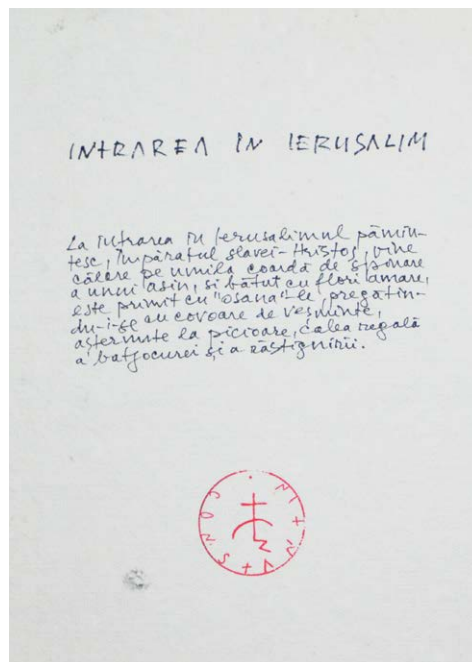 INTRAREA IN IERUSALIM
La intrarea în Ierusalimul pămîn-
tesc, Împăratul slavei - Hristos, vine
călare pe umila coardă de spinare
a unui asin, si bătut cu flori amare,
este primit cu "osana"-le, pregătin-
du-i-se cu covoare de veșminte,
așternute la picioare, calea regală
a batjocurei și a răstignirii.